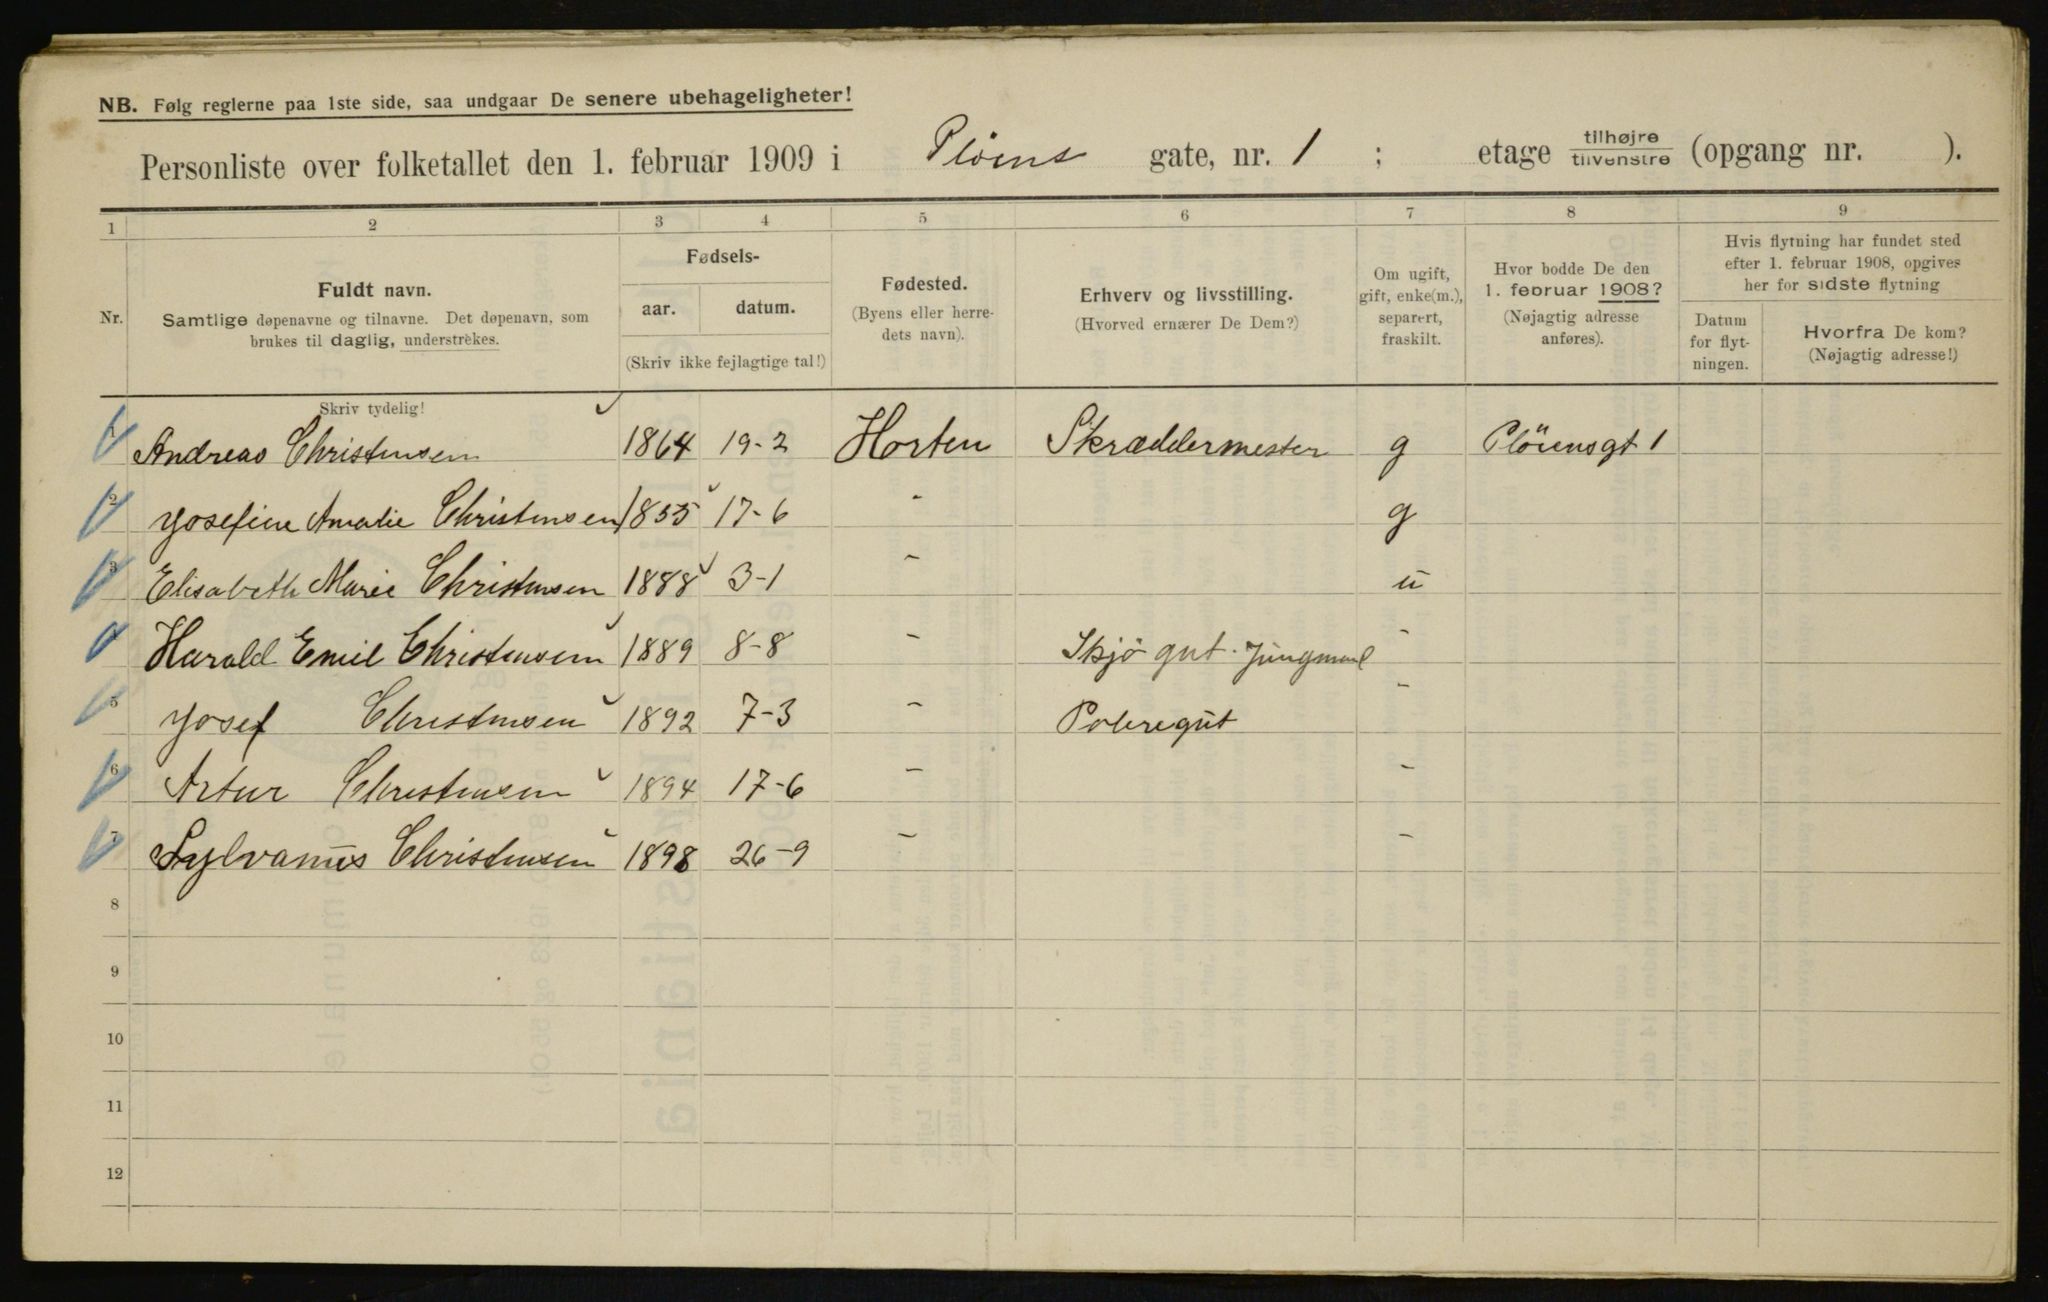 NB. Følg reglerne paa 1ste side, saa undgaar De senere ubehageligheter!
Personliste over folketallet den 1. februar 1909 i Pløens gate, nr. 1 ; etage tilhøjre tilvenstre (opgang nr. ).
1 2 3 4 5 6 7 8 9
Nr.
Fuldt navn.
Samtlige døpenavne og tilnavne. Det døpenavn, som
brukes til daglig, understrekes.
Fødsels-
aar. datum.
(Skriv ikke fejlagtige tal!)
Fødested.
(Byens eller herre-
dets navn).
Erhverv og livsstilling.
(Hvorved ernærer De Dem?)
Om ugift,
gift, enke(m.),
separert,
fraskilt.
Hvor bodde De den
1. februar 1908?
(Nøjagtig adresse
anføres).
Hvis flytning har fundet sted
efter 1. februar 1908, opgives
her for sidste flytning
Datum
for flyt-
ningen.
Hvorfra De kom?
(Nøjagtig adresse!)
Skriv tydelig!
1 Andreas Christensen 1864 19-2 Horten Skræddermester g Plöiensgt 1
2 Josefine Amalie Christensen 1855 17-6 " g
3 Elisabeth Marie Christensen 1888 3-1 " u
4 Harald Emil Christensen 1889 8-8 " Skjö gut. Jungmand "
5 Josef Christensen 1892 7-3 " "
6 Artur Christensen 1894 17-6 " "
7 Sylvanus Christensen 1898 26-9 " "
8
9
10
11
12